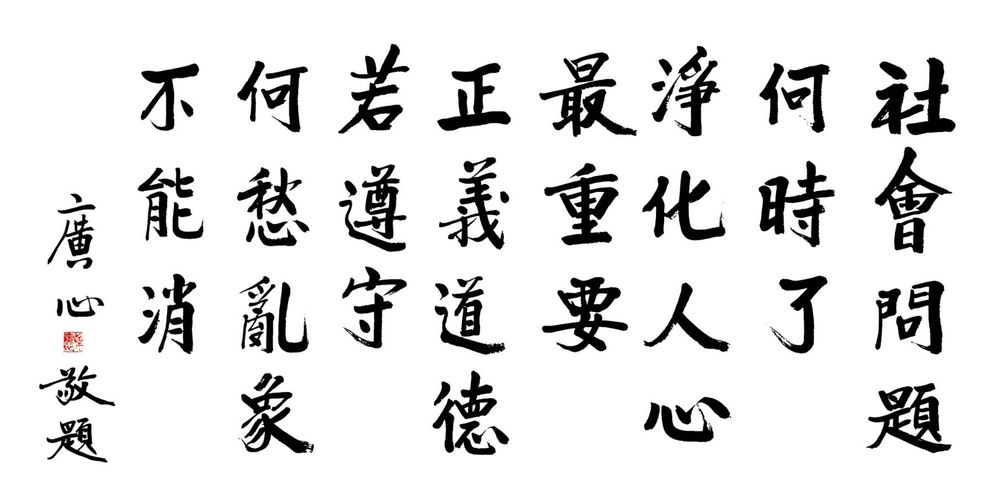 社會問題
何時了
淨化人心
最重要
正義道德
若遵守
何愁亂象
不能消
廣心敬題